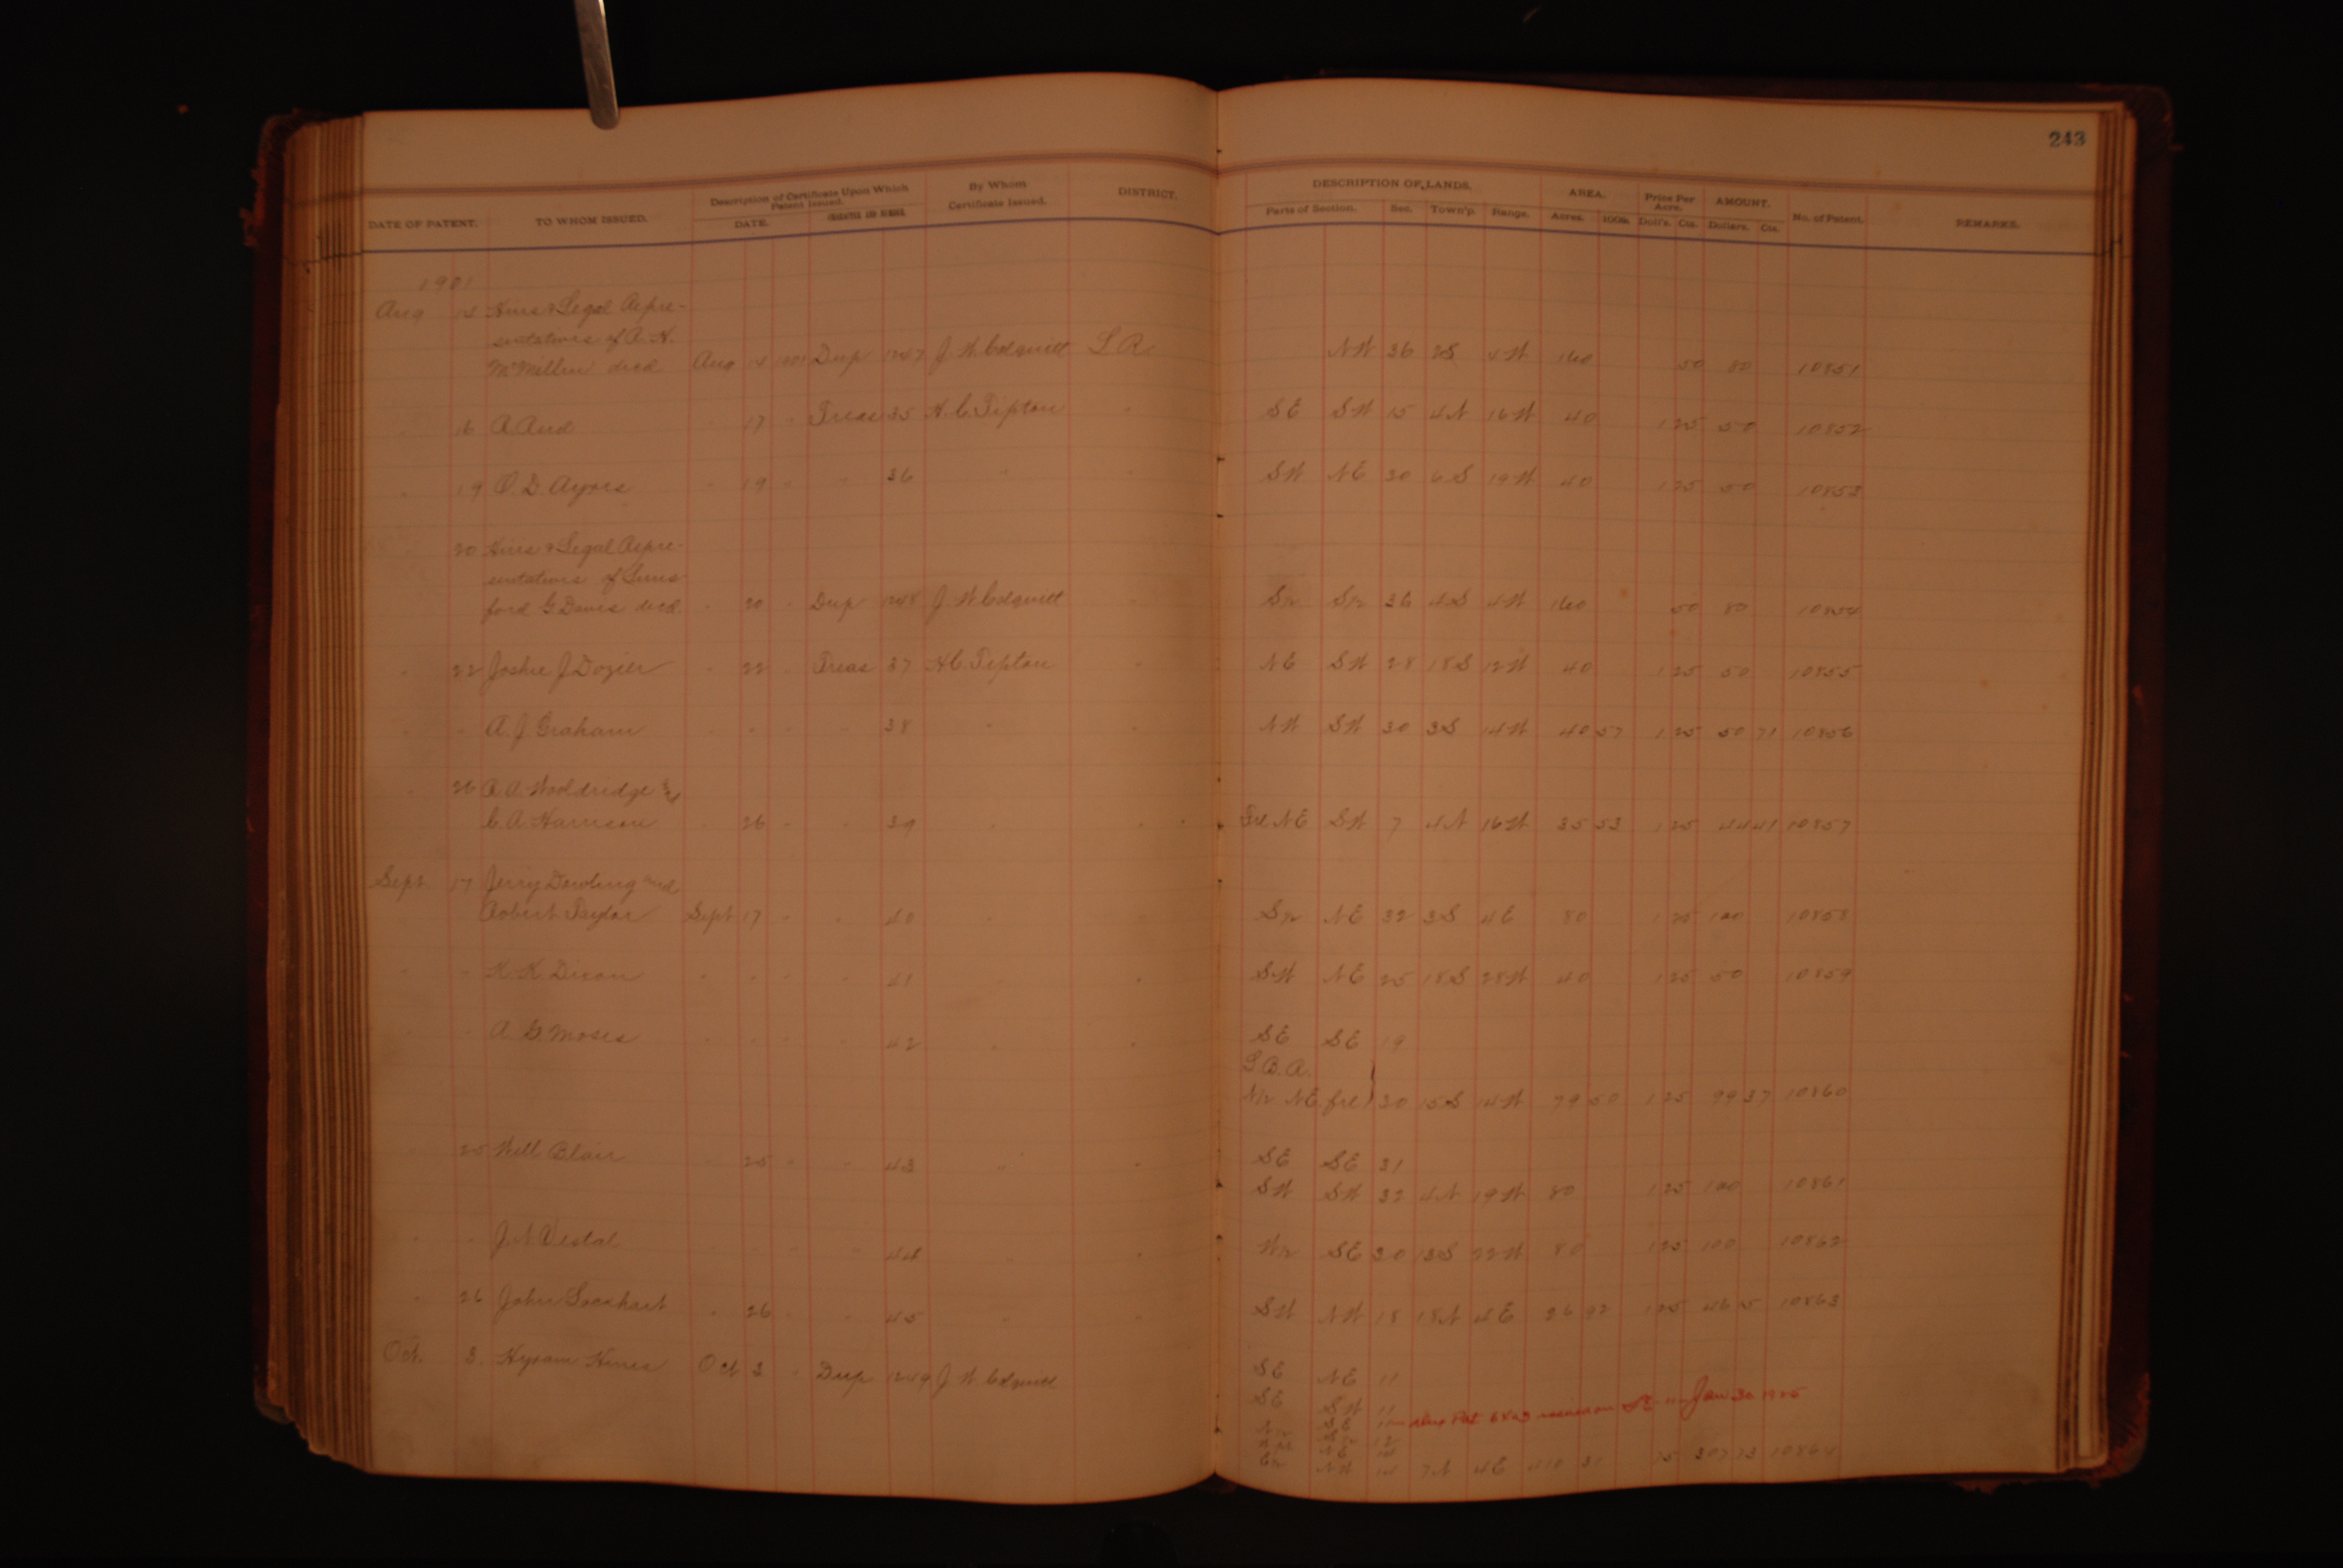 243
DATE OF PATENT. TO WHOM ISSUED. Description of Certificate Upon Which Patent Issued. DATE. By Whom Certificate Issued. DISTRICT. DESCRIPTION OF LANDS. Parts of Section. Sec. Town'p. Range. AREA. Acres. 100ths. Price Per Acre. Doll's. Cts. AMOUNT. Dollars. Cts. No. of Patent. REMARKS.
1901
Aug 14 Heirs & Legal Repre-
sentatives of A. H.
McMillin decd Aug 14 1901 Dup 1247 J. W. Colquitt L R NW 36 2S 4W 160 50 80 10851
" 16 R. Aud " 17 " Treas 35 H. C. Tipton " SE SW 15 4N 16W 40 1 25 50 10852
" 19 O. D Ayers " 19 " " 36 " " SW NE 30 6S 19W 40 1 25 50 10853
" 20 Heirs & Legal Repre-
sentatives of Luns-
ford G Davis decd " 20 " Dup 1248 J. W. Colquitt " S½ S½ 36 4S 4W 160 50 80 10854
" 22 Joshie J Dozier " 22 " Treas 37 H C Tipton " NE SW 28 18S 12W 40 1 25 50 10855
" " A. J. Graham " " " " 38 " " NW SW 30 3S 14W 40 57 1 25 50 71 10856
" 26 A. A. Wooldridge and
C. A. Harrison " 26 " " 39 " " Frl NE SW 7 4N 16W 35 53 1 25 44 41 10857
Sept 17 Jerry Dowling and
Robert Taylor Sept 17 " " 40 " " S½ NE 32 3S 4E 80 1 25 100 10858
" " K. K Dixon " " " " 41 " " SW NE 25 18S 28W 40 1 25 50 10859
" " A G Moses " " " " 42 " " SE SE 19
N½ NE frl 30 15S 14W 79 50 1 25 99 37 10860
" 25 Will Blair " 25 " " 43 " " SE SE 31
SW SW 32 4N 19W 80 1 25 100 10861
" " J. N. Vestal " " " " 44 " " W½ SE 30 13S 22W 80 1 25 100 10862
" 26 John Lockhart " 26 " " 45 " " SW NW 18 18N 4E 36 92 1 25 46 15 10863
Oct. 3 Hyram Hines Oct 3 " Dup 1249 J W Colquitt SE NE 11
SE SW 11
N½ SE 11 Jan 30 1925
NE
E½ NW 14 7N 4E 410 31 75 307 73 10864